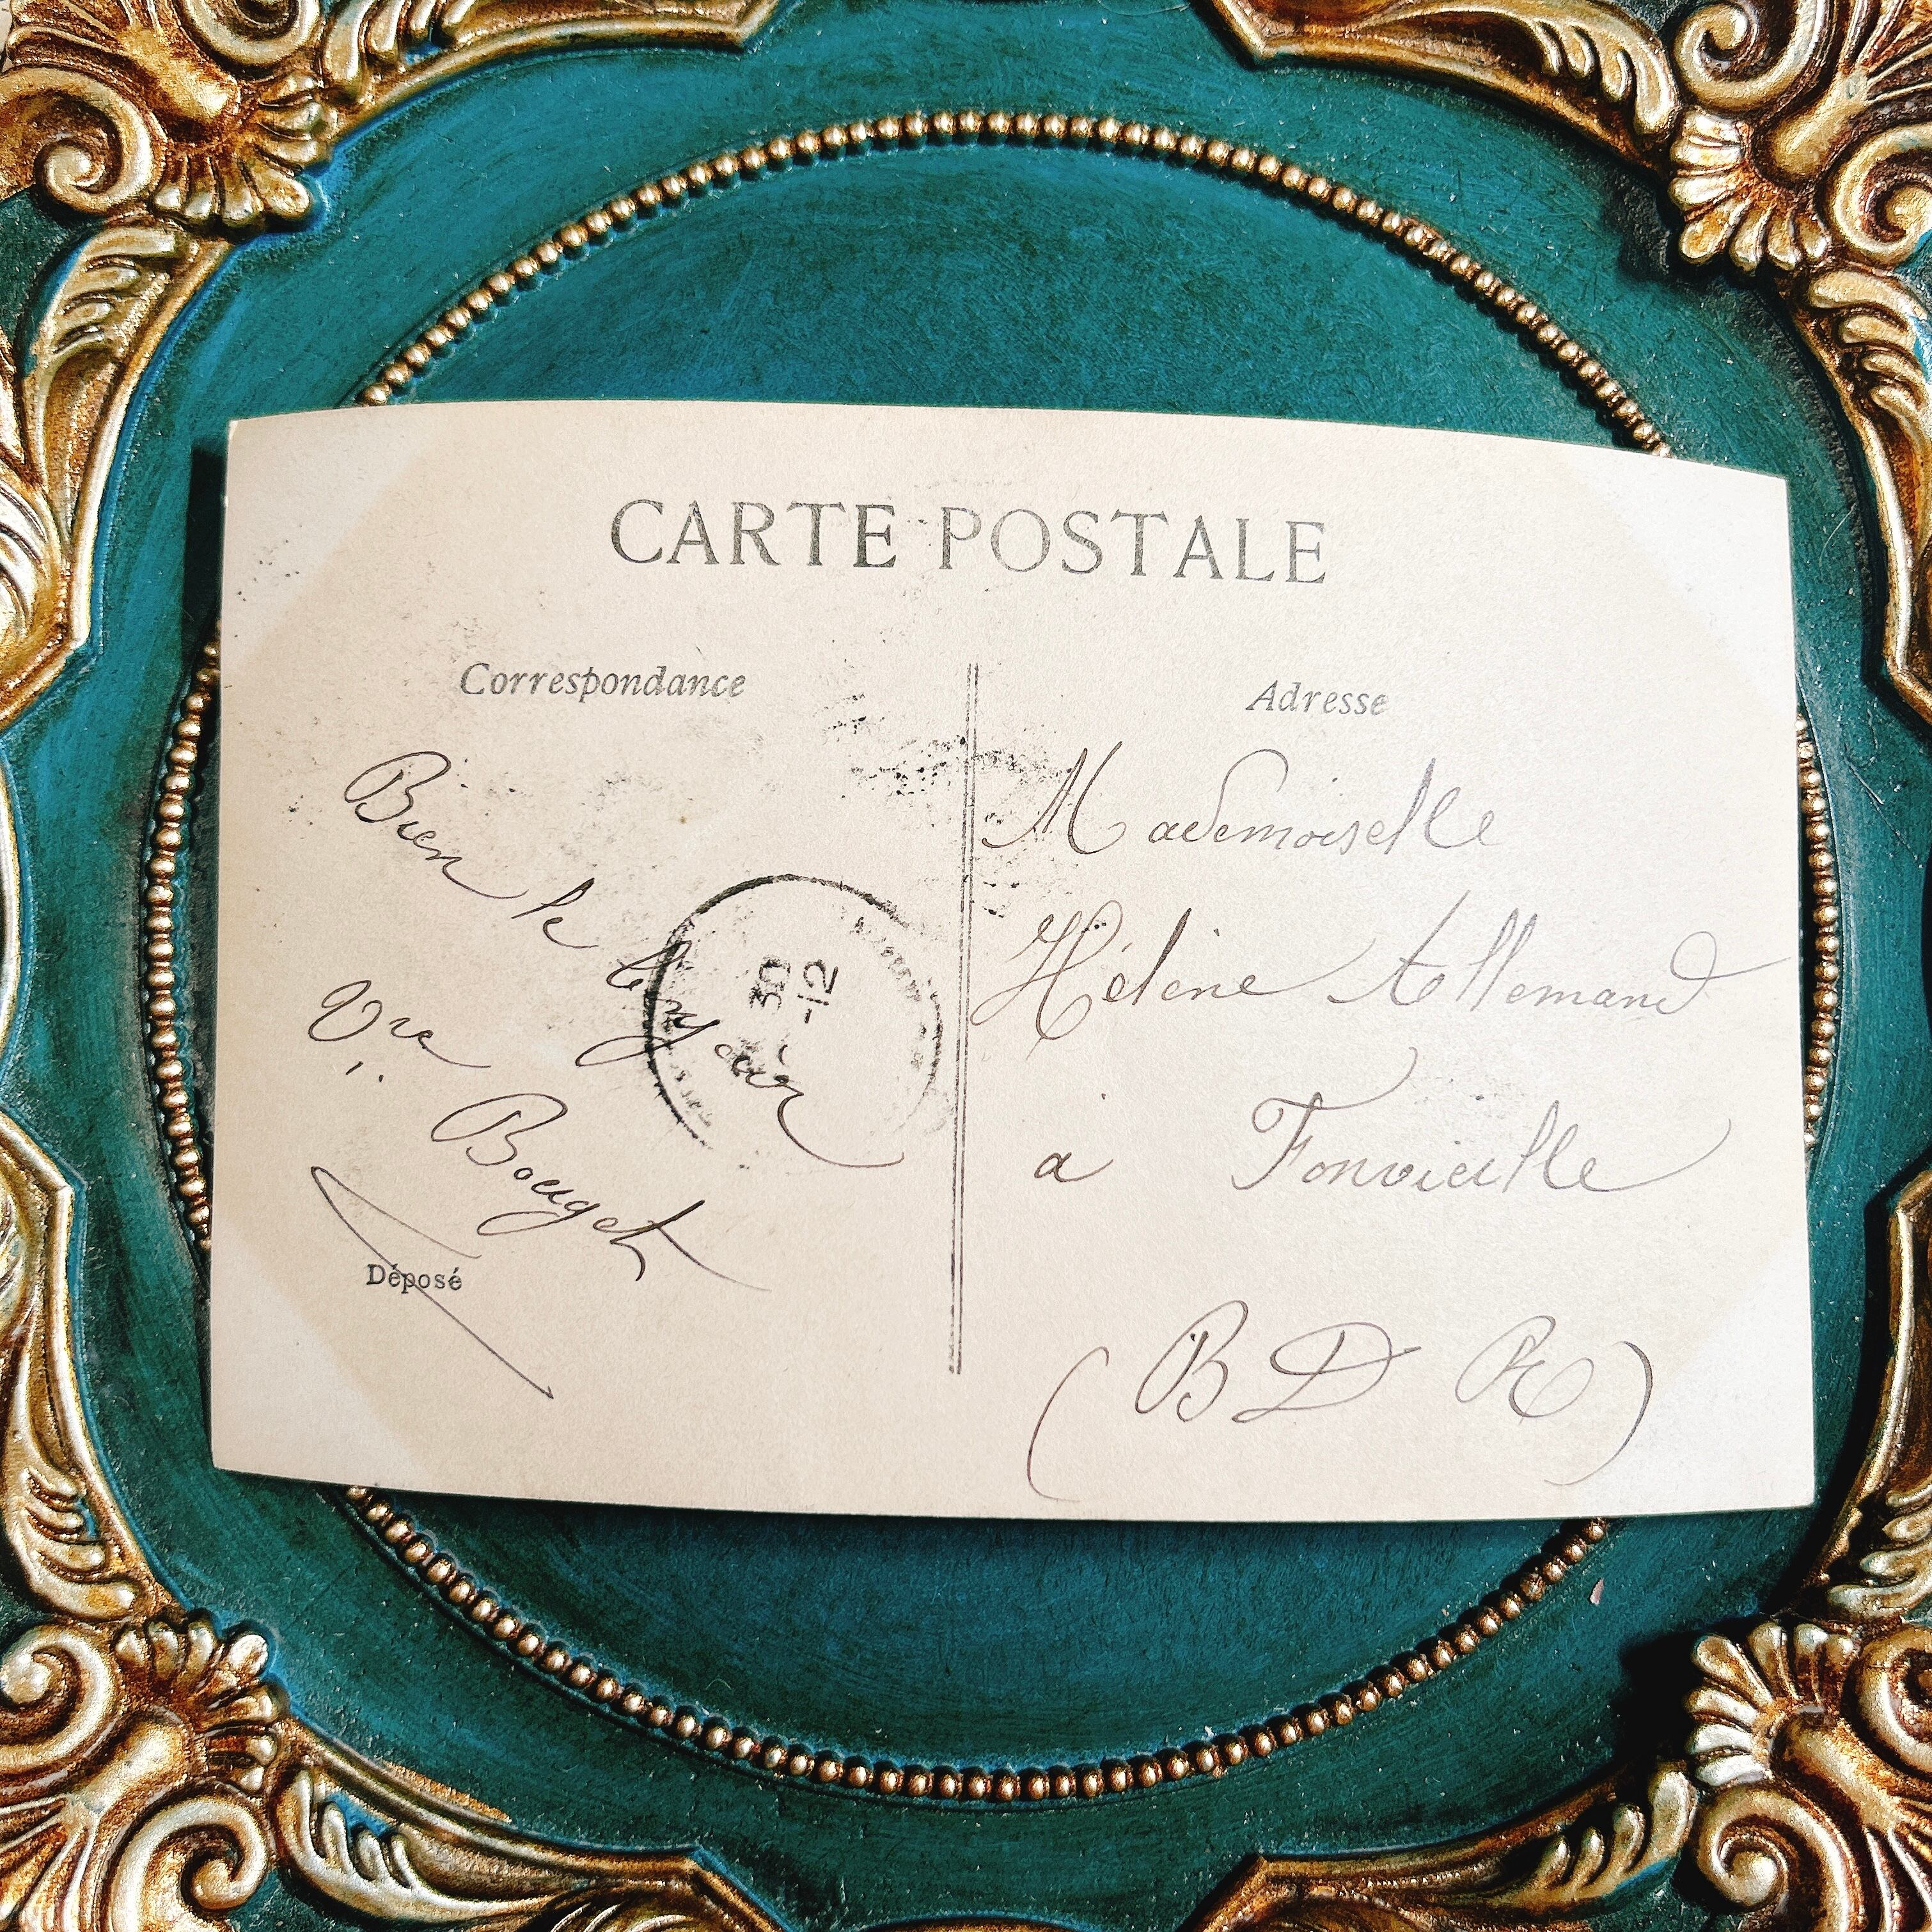 CARTE POSTALE
Correspondance
Bien le bonjour
Vve Bouget
Déposé
30
-12
Adresse
Mademoiselle
Hélène Allemand
à Fonvieille
(B D R)